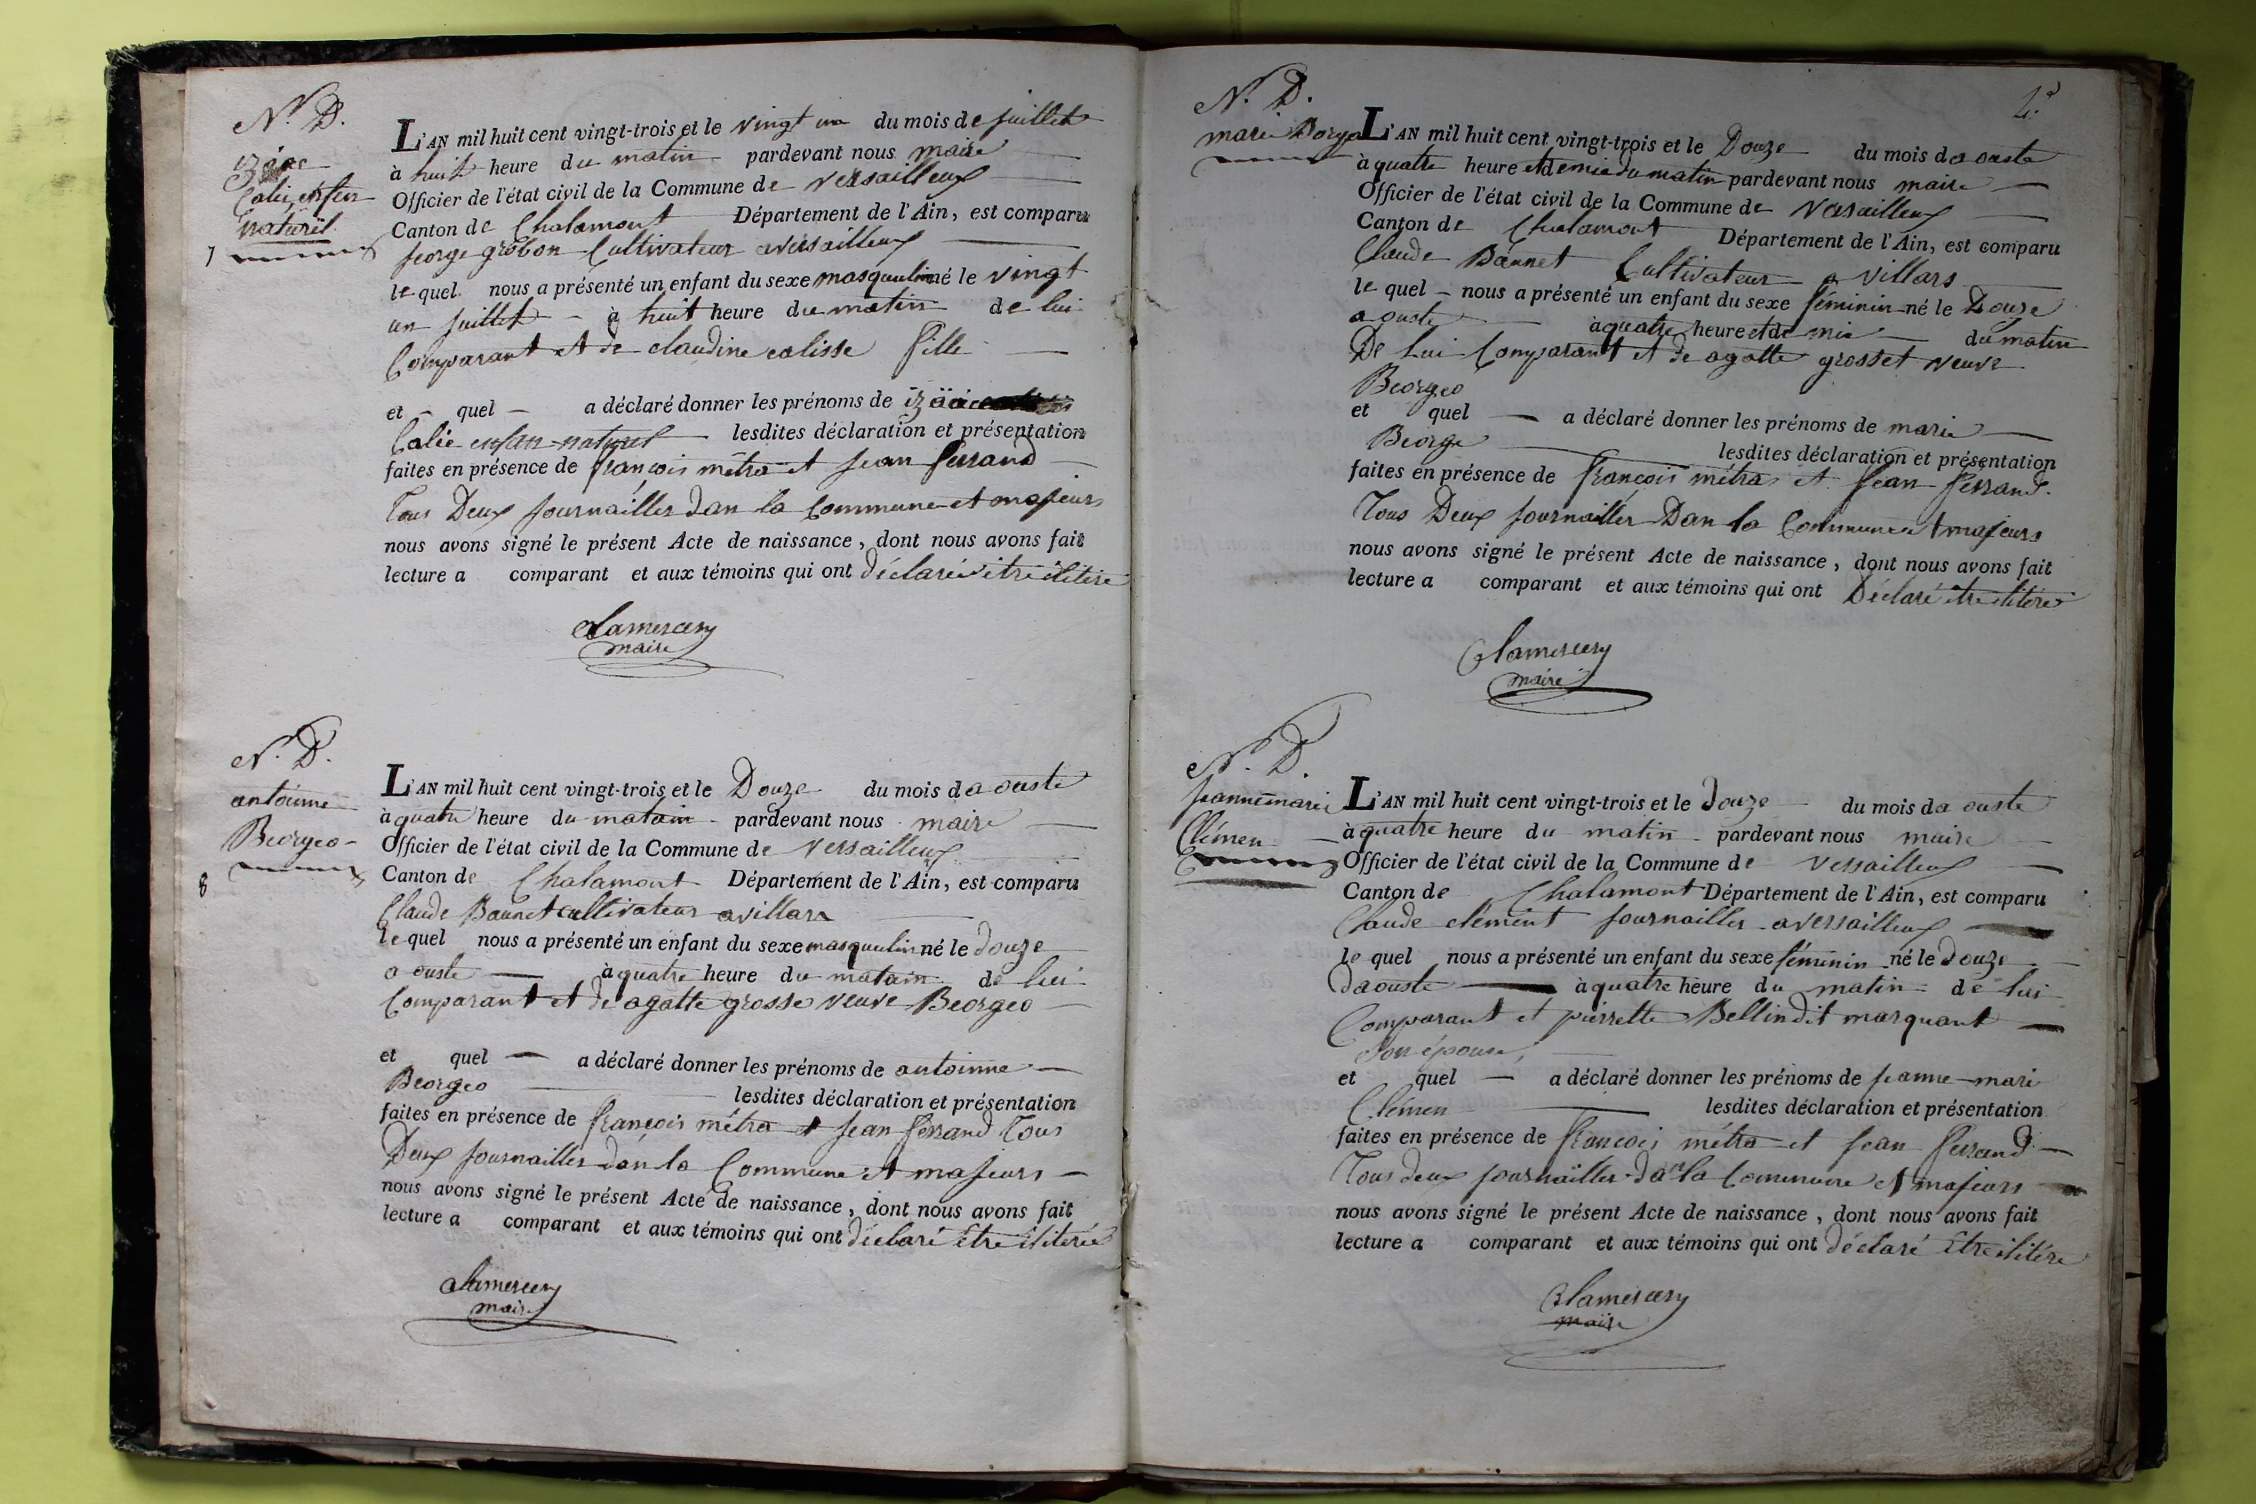 N. D.
izäac
Calie enfan
naturel
7
L'AN mil huit cent vingt-trois et le vingt un du mois de juillet
à huit heure du matin pardevant nous maire
Officier de l'état civil de la Commune de versailleux
Canton de Chalamont Département de l'Ain, est comparu
george grobon Cultivateur aversailleux
le quel nous a présenté un enfant du sexe masqueulin né le vingt
un juillet à huit heure du matin de lui
Comparant et de claudine calisse fille
et quel a déclaré donner les prénoms de izäac
Calie enfan naturel lesdites déclaration et présentation
faites en présence de françois métra et jean ferrand
Tous Deux journailler dan la Commune et majeurs
nous avons signé le présent Acte de naissance, dont nous avons fait
lecture a comparant et aux témoins qui ont déclaré etre ilitére
Clamercery
maire
N. D.
antoinne
Beorgeo
8
L'AN mil huit cent vingt-trois et le Douze du mois da ouste
à quatre heure du matain pardevant nous maire
Officier de l'état civil de la Commune de versailleux
Canton de Chalamont Département de l'Ain, est comparu
Claude Bonnet cultivateur avillars
le quel nous a présenté un enfant du sexe masqueulin né le douze
a ouste à quatre heure du matain de lui
Comparant et de agatte grosse veuve Beorgeo
et quel a déclaré donner les prénoms de antoinne
Beorgeo lesdites déclaration et présentation
faites en présence de françois métra et jean ferrand Tous
Deux journailler dan la Commune et majeurs
nous avons signé le présent Acte de naissance, dont nous avons fait
lecture a comparant et aux témoins qui ont déclaré etre ilitérée
Clamercery
maire
N. D.
marie Borgeo
L'AN mil huit cent vingt-trois et le Douze du mois da ouste
à quatre heure et demie du matin pardevant nous maire
Officier de l'état civil de la Commune de versailleux
Canton de Chalamont Département de l'Ain, est comparu
Claude Bonnet Cultivateur a villars
le quel nous a présenté un enfant du sexe féminin né le Douze
a ouste à quatre heure et de mie du matin
De Lui Comparant et de agatte grosset veuve
Beorgeo
et quel a déclaré donner les prénoms de marie
Beorge lesdites déclaration et présentation
faites en présence de françois métra et jean ferrand.
Tous Deux journailler Dan la Commune et majeurs
nous avons signé le présent Acte de naissance, dont nous avons fait
lecture a comparant et aux témoins qui ont Déclaré etre ilitére
Clamercery
maire
N. D.
jeanne marie
Clémen
L'AN mil huit cent vingt-trois et le douze du mois da ouste
à quatre heure du matin pardevant nous maire
Officier de l'état civil de la Commune de versailleux
Canton de Chalamont Département de l'Ain, est comparu
Claude clément journailler aversailleux
le quel nous a présenté un enfant du sexe féminin né le douze
daouste à quatre heure du matin de lui
Comparant et pierrette Bellin dit marquant
son épouse,
et quel a déclaré donner les prénoms de jeanne mari
Clémen lesdites déclaration et présentation
faites en présence de françois métra et jean ferrand
Tous deux journailler dan la Commune et majeurs
nous avons signé le présent Acte de naissance, dont nous avons fait
lecture a comparant et aux témoins qui ont déclaré etre ilitére
Clamercery
maire